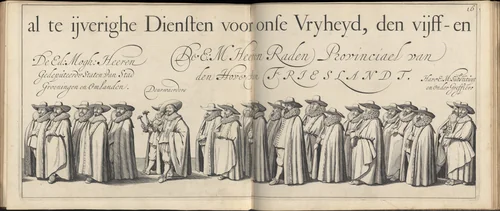 16
al te ijverighe Diensten voor onse Vryheyd, den vijff-en
De Ed. Mogh: Heeren
Gedeputeerde Staten van Stad
Groeningen en Omlanden.
Deurwaerders
De E. M. Heeren Raden Provinciael van
den Hove van FRIESLANDT.